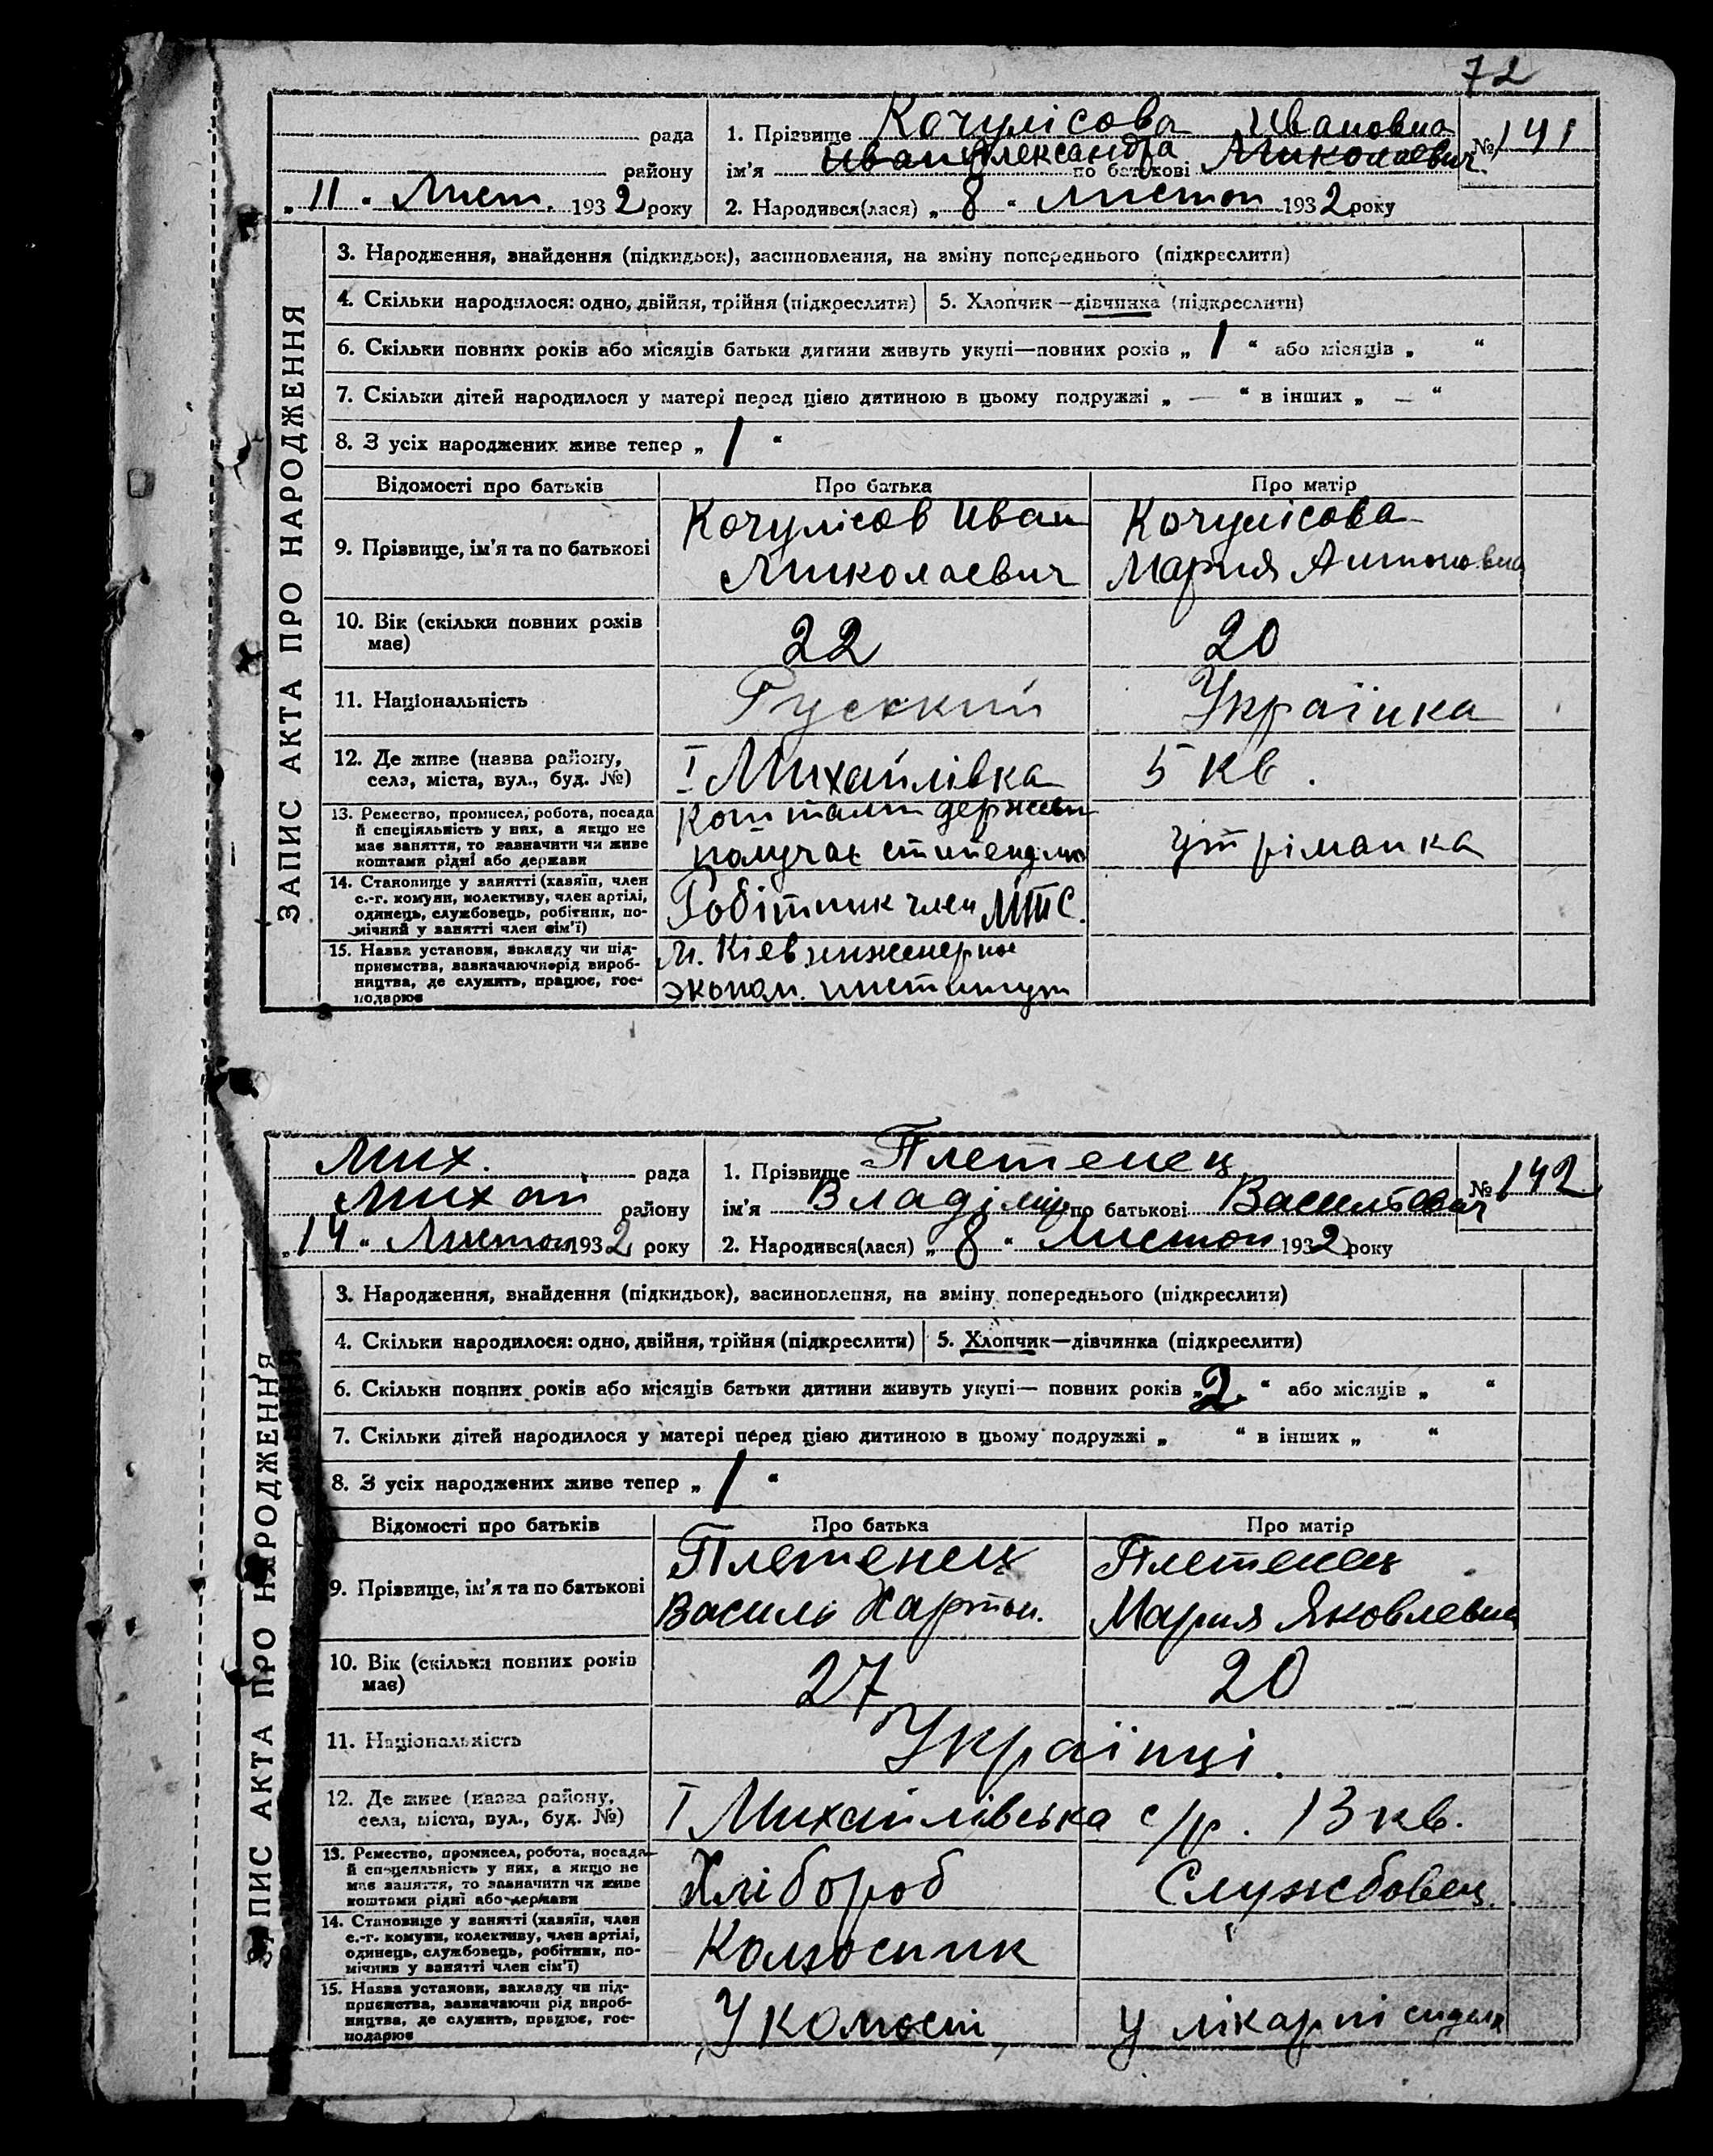 72
рада
району
„11“ Лист. 1932 року
1. Прізвище Кочулісова Ивановна
ім'я Иван Александра по батькові Миколаевич
2. Народився(лася) „8“ Листоп 1932 року
№ 141
ЗАПИС АКТА ПРО НАРОДЖЕННЯ
3. Народження, знайдення (підкидьок), засиновлення, на зміну попереднього (підкреслити)
4. Скільки народилося: одно, двійня, трійня (підкреслити) 5. Хлопчик—дівчинка (підкреслити)
6. Скільки повних років або місяців батьки дитини живуть укупі—повних років „1“ або місяців „ “
7. Скільки дітей народилося у матері перед цією дитиною в цьому подружжі „—“ в інших „—“
8. З усіх народжених живе тепер „1“
Відомості про батьків Про батька Про матір
9. Прізвище, ім'я та по батькові
Кочулісов Иван
Миколаевич
Кочулісова
Мария Антоновна
10. Вік (скільки повних років
має)
22 20
11. Національність Руский Українка
12. Де живе (назва району,
села, міста, вул., буд. №)
I Михайлівка 5 кв.
13. Ремество, промисел, робота, посада
й спеціяльність у них, а якщо не
має заняття, то зазначити чи живе
коштами рідні або держави
Коштами держави
получає стипендию
утріманка
14. Становище у занятті (хазяїн, член
с.-г. комуни, колективу, член артілі,
одинець, службовець, робітник, по-
мічний у занятті член сім'ї)
Робітник член МТС.
15. Назва установи, закладу чи під-
приємства, зазначаючи рід вироб-
ництва, де служить, працює, гос-
подарює
м. Кіев инженерное
эконом. институт
Мих. рада
Михай району
„14“ Листоп 1932 року
1. Прізвище Плетенец
ім'я Владімір по батькові Васильевич
2. Народився(лася) „8“ Листоп 1932 року
№ 142
ЗАПИС АКТА ПРО НАРОДЖЕННЯ
3. Народження, знайдення (підкидьок), засиновлення, на зміну попереднього (підкреслити)
4. Скільки народилося: одно, двійня, трійня (підкреслити) 5. Хлопчик—дівчинка (підкреслити)
6. Скільки повних років або місяців батьки дитини живуть укупі—повних років „2“ або місяців „ “
7. Скільки дітей народилося у матері перед цією дитиною в цьому подружжі „ “ в інших „ “
8. З усіх народжених живе тепер „1“
Відомості про батьків Про батька Про матір
9. Прізвище, ім'я та по батькові
Плетенец
Василь Хартон.
Плетенец
Мария Яковлевна
10. Вік (скільки повних років
має)
27 20
11. Національність Українці.
12. Де живе (назва району,
села, міста, вул., буд. №)
I Михайлівська с/р. 13 кв.
13. Ремество, промисел, робота, посада
й спеціяльність у них, а якщо не
має заняття, то зазначити чи живе
коштами рідні або держави
Хлібороб Службовец.
14. Становище у занятті (хазяїн, член
с.-г. комуни, колективу, член артілі,
одинець, службовець, робітник, по-
мічник у занятті член сім'ї)
Колгоспник
15. Назва установи, закладу чи під-
приємства, зазначаючи рід вироб-
ництва, де служить, працює, гос-
подарює
У колгоспі у лікарні